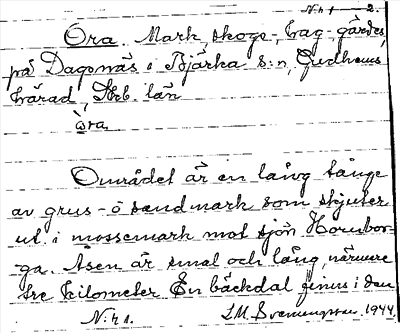 N:r 1 2.
Ora. Mark, skogs-, hag-, gärdes,
på Dagsnäs i Bjärka s:n, Gudhems
härad, Skb. län
òra
Området är en lång tånge
av grus- o sandmark som skjuter
ut i mossemark mot sjön Hornbor-
ga. Åsen är smal och lång, närmare
tre kilometer. En bäckdal finns i den
N:r 1. L.M. Svenungsson 1944.